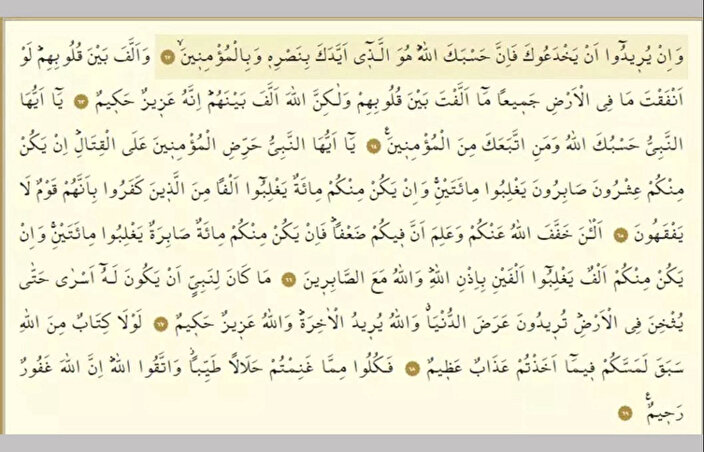 وَاِنْ يُرٖيدُٓوا اَنْ يَخْدَعُوكَ فَاِنَّ حَسْبَكَ اللّٰهُؕ هُوَ الَّـذٖٓي اَيَّدَكَ بِنَصْرِهٖ وَبِالْمُؤْمِنٖينَۙ ﴿٦٢﴾ وَاَلَّفَ بَيْنَ قُلُوبِهِمْؕ لَوْ
اَنْفَقْتَ مَا فِي الْاَرْضِ جَمٖيعاً مَٓا اَلَّفْتَ بَيْنَ قُلُوبِهِمْ وَلٰكِنَّ اللّٰهَ اَلَّفَ بَيْنَهُمْؕ اِنَّهُ عَزٖيزٌ حَكٖيمٌ ﴿٦٣﴾ يَٓا اَيُّهَا
النَّبِيُّ حَسْبُكَ اللّٰهُ وَمَنِ اتَّبَعَكَ مِنَ الْمُؤْمِنٖينَࣖ ﴿٦٤﴾ يَٓا اَيُّهَا النَّبِيُّ حَرِّضِ الْمُؤْمِنٖينَ عَلَى الْقِتَالِؕ اِنْ يَكُنْ
مِنْكُمْ عِشْرُونَ صَابِرُونَ يَغْلِبُوا مِائَتَيْنِۚ وَاِنْ يَكُنْ مِنْكُمْ مِائَةٌ يَغْلِبُٓوا اَلْفاً مِنَ الَّذٖينَ كَفَرُوا بِاَنَّهُمْ قَوْمٌ لَا
يَفْقَهُونَ ﴿٦٥﴾ اَلْـٰٔنَ خَفَّفَ اللّٰهُ عَنْكُمْ وَعَلِمَ اَنَّ فٖيكُمْ ضَعْفاًؕ فَاِنْ يَكُنْ مِنْكُمْ مِائَةٌ صَابِرَةٌ يَغْلِبُوا مِائَتَيْنِۚ وَاِنْ
يَكُنْ مِنْكُمْ اَلْفٌ يَغْلِبُٓوا اَلْفَيْنِ بِاِذْنِ اللّٰهِؕ وَاللّٰهُ مَعَ الصَّابِرٖينَ ﴿٦٦﴾ مَا كَانَ لِنَبِيٍّ اَنْ يَكُونَ لَـهُٓ اَسْرٰى حَتّٰى
يُثْخِنَ فِي الْاَرْضِؕ تُرٖيدُونَ عَرَضَ الدُّنْيَاۗ وَاللّٰهُ يُرٖيدُ الْاٰخِرَةَؕ وَاللّٰهُ عَزٖيزٌ حَكٖيمٌ ﴿٦٧﴾ لَوْلَا كِتَابٌ مِنَ اللّٰهِ
سَبَقَ لَمَسَّكُمْ فٖيمَٓا اَخَذْتُمْ عَذَابٌ عَظٖيمٌ ﴿٦٨﴾ فَكُلُوا مِمَّا غَنِمْتُمْ حَلَالاً طَيِّباًۘ وَاتَّقُوا اللّٰهَؕ اِنَّ اللّٰهَ غَفُورٌ
رَحٖيمٌࣖ ﴿٦٩﴾